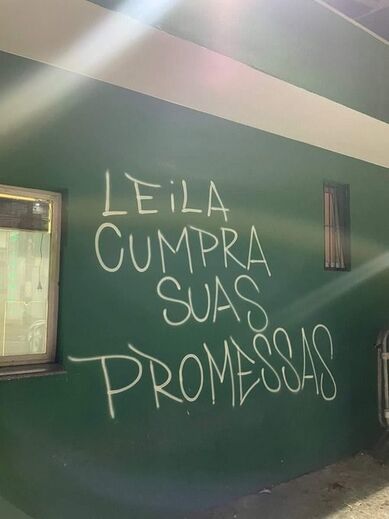 LEiLA
CUMPRA
SUAS
PROMESSAS